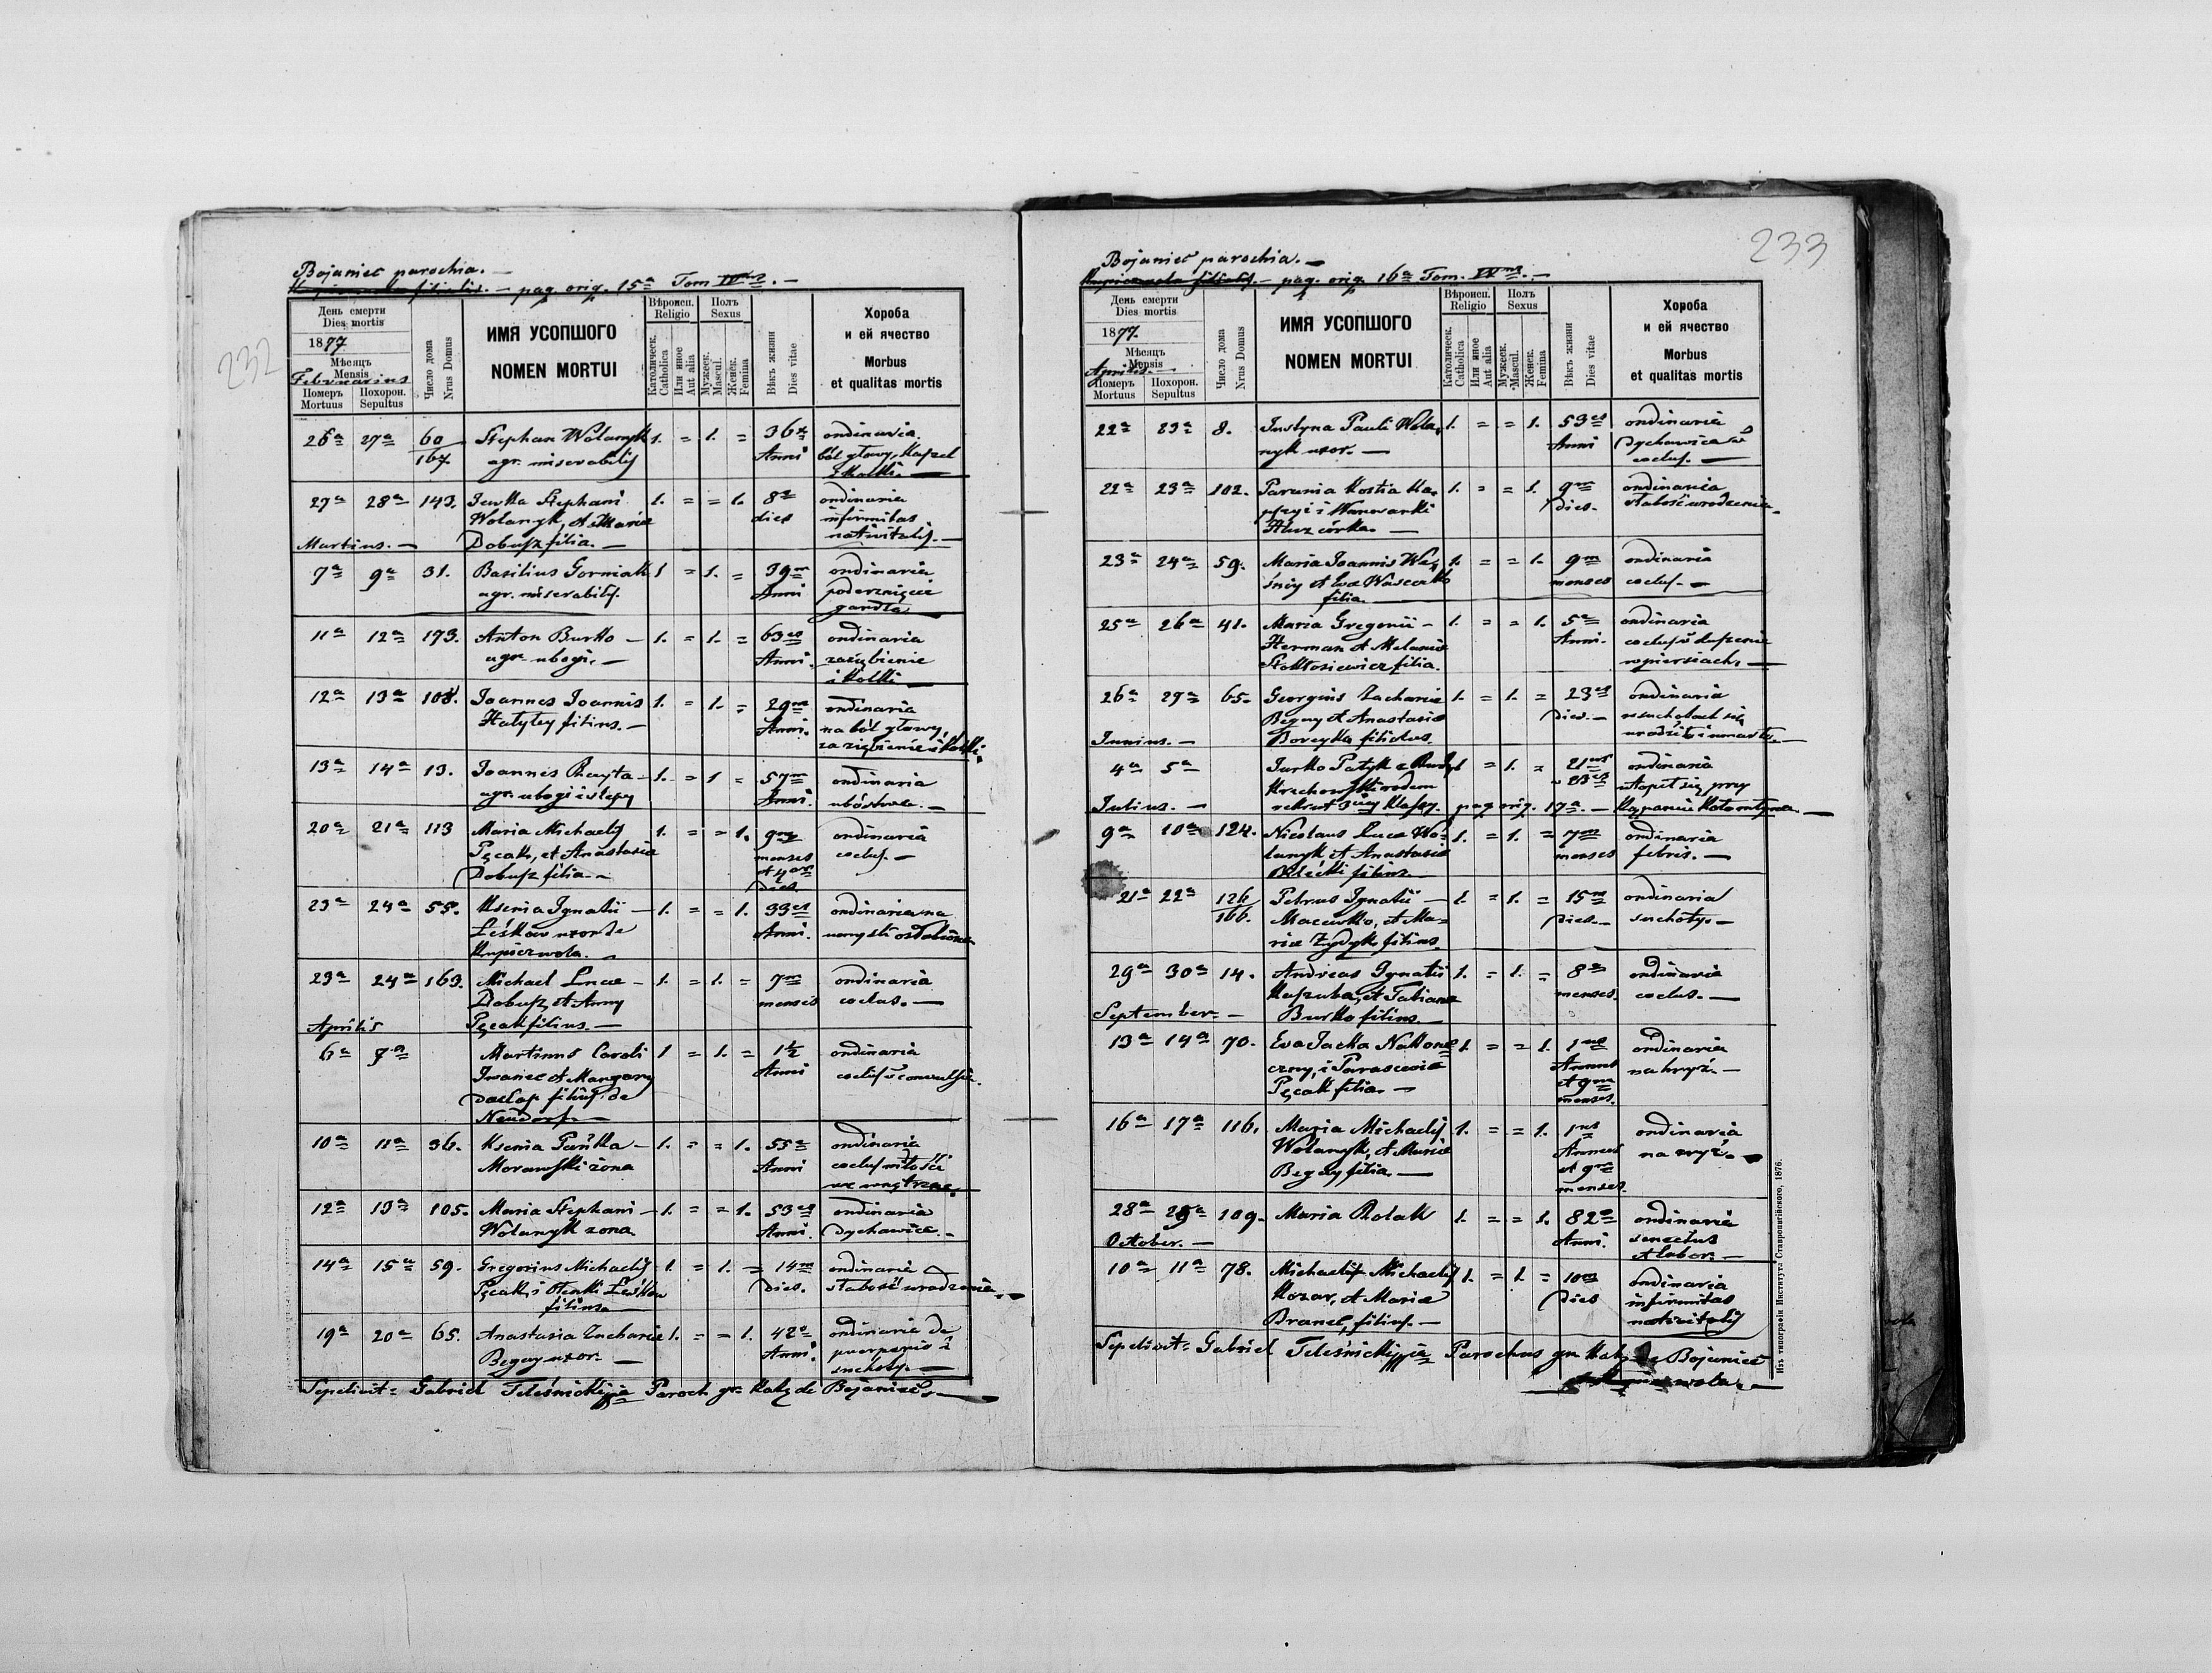 232
Bojaniec parochia. —
pag. orig. 15ª Tom IVus. —
День смерти
Dies mortis
1877
Мѣсяцъ
Mensis
Februarius
Померъ
Mortuus
Похорон.
Sepultus
Число дома
Nrus Domus
ИМЯ УСОПШОГО
NOMEN MORTUI
Вѣроисп.
Religio
Католическ.
Catholica
Или иное
Aut alia
Полъ
Sexus
Мужеск.
Mascul.
Женск.
Femina
Вѣкъ жизни
Dies vitae
Хороба
и ей ячество
Morbus
et qualitas mortis
26ª 27ª 60/167 Stephan Wołanyk 1. = 1. = 36 ordinaria
agr. miserabilis Anni ból głowy, Kaszel
i Kolki. —
27ª 28ª 143. Jewka Stephani 1. = = 1. 8 ordinaria
Wołanyk, et Maria dies infirmitas
Martius. — Dobusz filia. — nativitatis. —
7ª 9ª 31. Basilius Gorniak 1 = 1. = 39m ordinaria
agr. miserabilis. Anni poderznięcie
gardła
11ª 12ª 173. Anton Burko — 1. = 1. = 63 ordinaria
agr. ubogi. — Anni. zaziębienie
i Kolki
12ª 13ª 108. Joannes Joannis 1. = 1. = 29m ordinaria
Hałytey filius. — Anni. na ból głowy,
zaziębienie i Kolki.
13ª 14ª 13. Joannes — 1. = 1 = 57m ordinaria
agr. ubogi i ślepy Anni. ubóstwo. —
20ª 21ª 113 Maria Michaelis 1. = = 1. 9 ordinaria
Pęcak, et Anastasia menses coclus. —
Dobusz filia. — et 4 dies
23ª 24ª 55. Ksenia Ignatii — 1. = = 1. 33 ordinaria na
Leśków uxor de Anni.
Kupiczwola. —
23ª 24ª 163. Michael Lucae — 1. = 1. = 7m ordinaria
Dobusz, et Anny menses coclus. —
Aprilis Pęcak filius. —
6ª 7ª Martinus Caroli 1 = 1. = 1½ ordinaria
Iwaniec et Margary Anni
filius de
Neudorf —
10ª 11ª 36. Ksenia Pańka — 1. = = 1. 55 ordinaria
Morawski żona Anni
12ª 13ª 105. Maria Stephani — 1. = = 1. 53 ordinaria
Wołanyk żona Anni. Dychawica. —
14ª 15ª 59. Gregorius Michaelis 1. = 1. = 14m ordinaria
Pęcak, i Leśków Dies. słabość urodzenia. —
filius —
19ª 20ª 65. Anastasia Zacharie 1. = = 1. 42 ordinaria de
Begey uxor. — Anni. puerperio i
suchoty. —
Sepelivit: Gabriel Teleśnicki Paroch gr. Kat. de Bojaniec. —
233
Bojaniec parochia. —
pag. orig. 16ª Tom. IVus. —
День смерти
Dies mortis
1877.
Мѣсяцъ
Mensis
Aprilis. —
Померъ
Mortuus
Похорон.
Sepultus
Число дома
Nrus Domus
ИМЯ УСОПШОГО
NOMEN MORTUI
Вѣроисп.
Religio
Католическ.
Catholica
Или иное
Aut alia
Полъ
Sexus
Мужеск.
Mascul.
Женск.
Femina
Вѣкъ жизни
Dies vitae
Хороба
и ей ячество
Morbus
et qualitas mortis
22ª 23ª 8. Justyna Pauli Woła- 1. = = 1. 53 ordinaria
nyk uxor. — Anni Dychawica
coclus. —
22ª 23ª 102. Parania Kostia Ka- 1. = = 1. 9m ordinaria
i Dies. słabość urodzenia.
córka. —
23ª 24ª 59. Maria Joannis 1. = = 1. 9m ordinaria
et Eva menses coclus. —
filia. —
25ª 26ª 41. Maria Gregorii — 1. = = 1. 5 ordinaria
Herman et Melania Anni. coclus
Stokłosiewicz filia. w piersiach. —
26ª 27ª 65. Georgius Zacharie 1. = 1. = 23 ordinaria
Begey et Anastasia Dies. — w suchotach się
Junius. — Borcyka filiolus. urodził i umarł. —
4ª 5ª Jurko Patyk 1 = 1. = 21 ordinaria
rodem 23 utopił się przy
Julius. — rekrut 3ciej Klasy. pag. orig. 17ª. — Kąpaniu
9ª 10ª 124. Nicolaus Luca Wo- 1. = 1. = 7m ordinaria
łanyk et Anastasia menses febris. —
filius. —
21ª 22ª 126/166. Petrus Ignatii — 1. = 1. = 15m ordinaria
Macewko, et Ma- Dies. — suchoty. —
ria Żydyk filius.
29ª 30ª 14. Andreas Ignatii 1. = 1. = 8 ordinaria
Kaszuba, et Tatiana menses. coclus. —
September — Burko filius. —
13ª 14ª 70. Eva Jacka Nakone- 1. = = 1. 1 ordinaria
czny, i Parascevia Annus na kryż. —
Pęcak filia. — et 9m
menses.
16ª 17ª 116. Maria Michaelis 1. = = 1. 1 ordinaria
Wołanyk, et Maria Annus
Begey filia. — et 9
menses.
28ª 29ª 109. Maria Rolak 1. = = 1. 82 ordinaria
October. — Anni. senectus
et labor. —
10ª 11ª 78. Michaelis Michaelis 1. = 1. = 10m ordinaria
Kozar, et Maria Dies infirmitas
Branel, filius. — nativitatis
Sepelivit: Gabriel Teleśnicki Parochus gr. Kat. de Bojaniec
Изъ типографіи Института Ставропигійского, 1876.